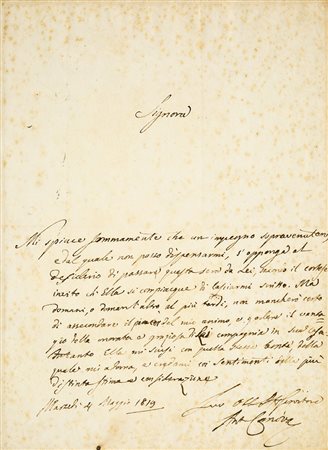 Signora
Mi spiace sommamente che un impegno sopravenutomi
e dal quale non posso dispensarmi, s'opponga al
desiderio di passare questa sera da Lei, giusto il cortese
invito ch'Ella si compiacque di lasciarmi scritto. Ma
domani, o dimani l'altro al più tardi, non mancherò certo
di assecondare il del mio animo e godere il vantag=
gio della grata e preziosa di Lei compagnia in sua casa
Intanto Ella mi scusi con quella bontà della
quale mi onora, e credami coi sentimenti della più
distinta stima e considerazione
Martedì 4 Maggio 1819
Suo Obb. Servitore
Ant. Canova